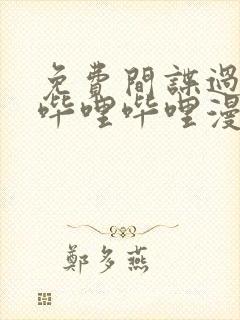 免費間諜過
哔哩哔哩漫
鄭多燕